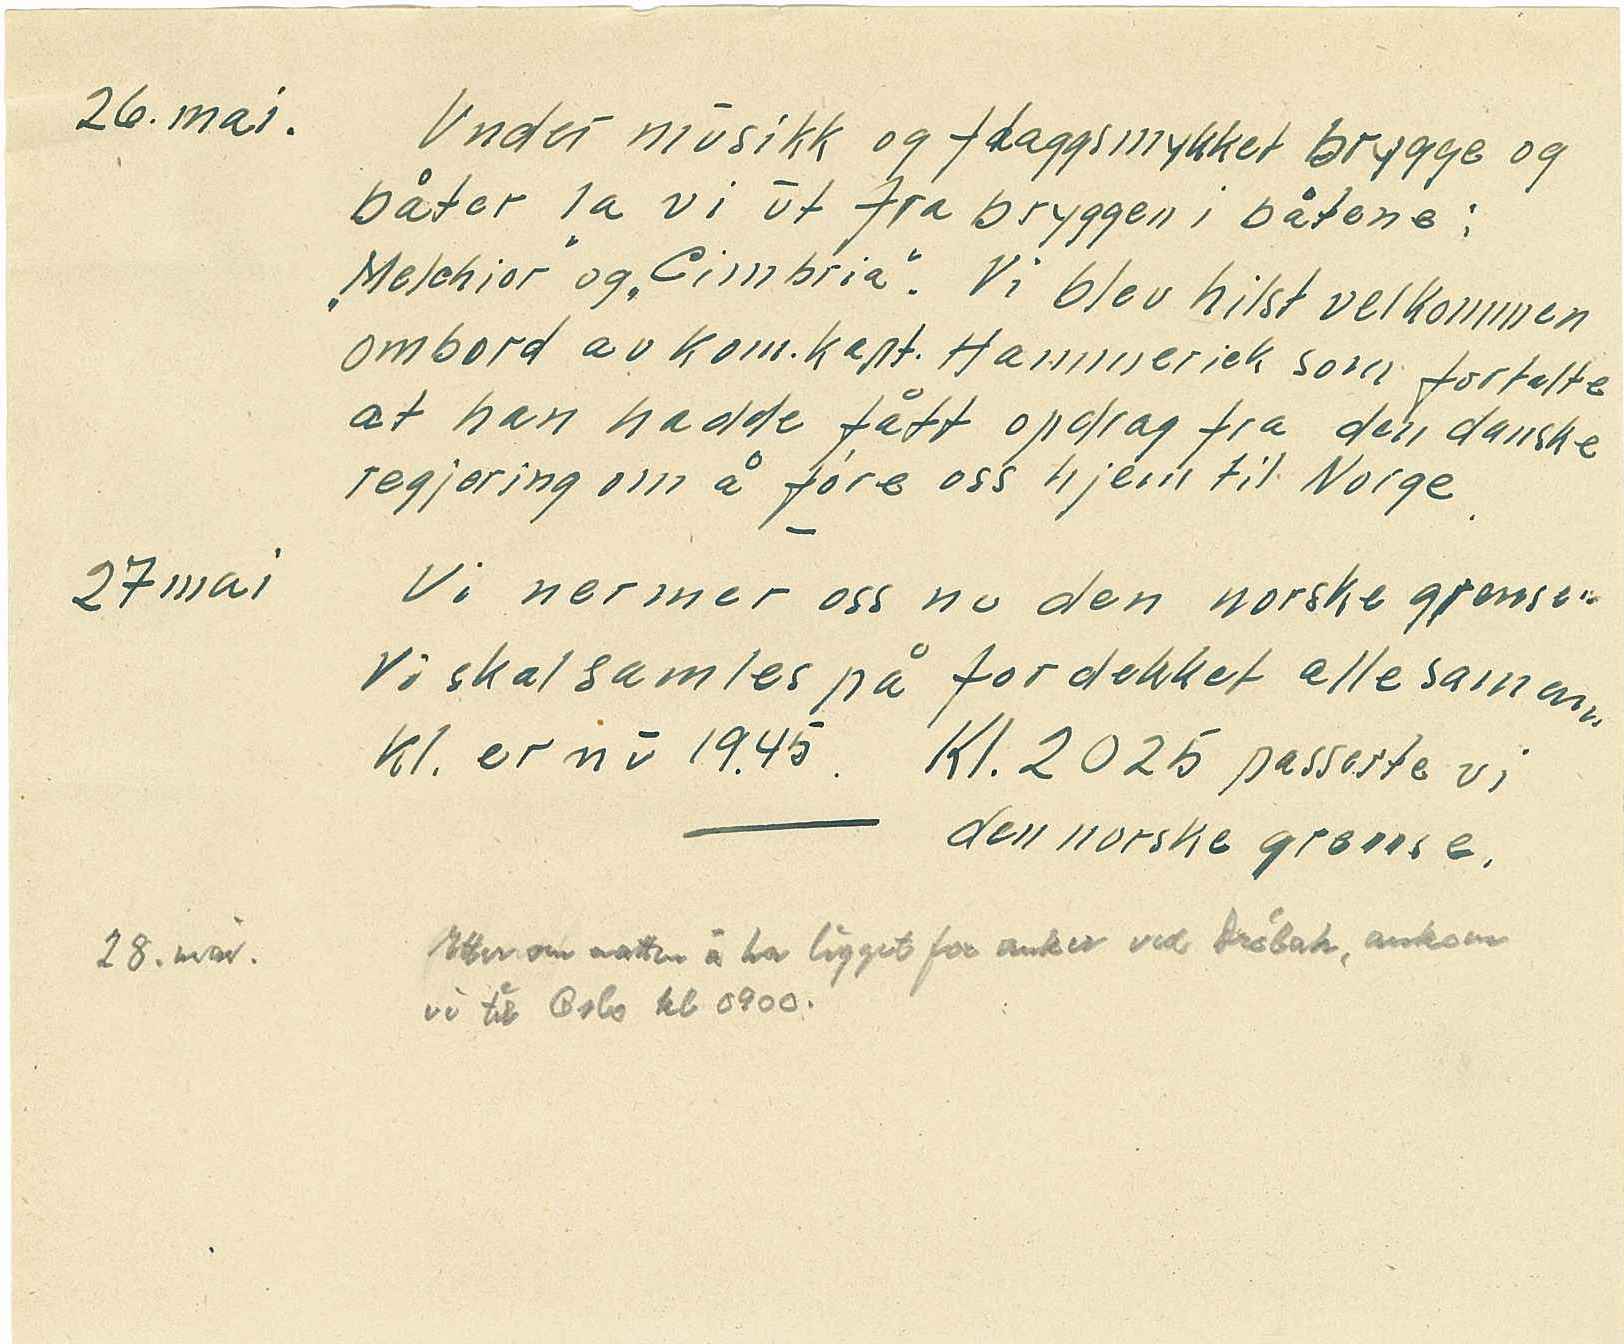 26. mai. Under mūsikk og flaggsmykket brygge og
båter la vi ūt fra bryggen i båtene:
„Melchior" og „Cimbria". Vi blev hilst velkommen
ombord av kom.kapt. Hammerich som fortalte
at han hadde fått opdrag fra den danske
regjering om å føre oss hjem til Norge.
27 mai Vi nermer oss nu den norske grense.
Vi skal samles på fordekket alle samen.
Kl. er nū 19.45. Kl. 2025 passerte vi
den norske grense.
28. mai. Etter om natten å ha ligget for anker ved Drøbak, ankom
vi til Oslo kl 0900.